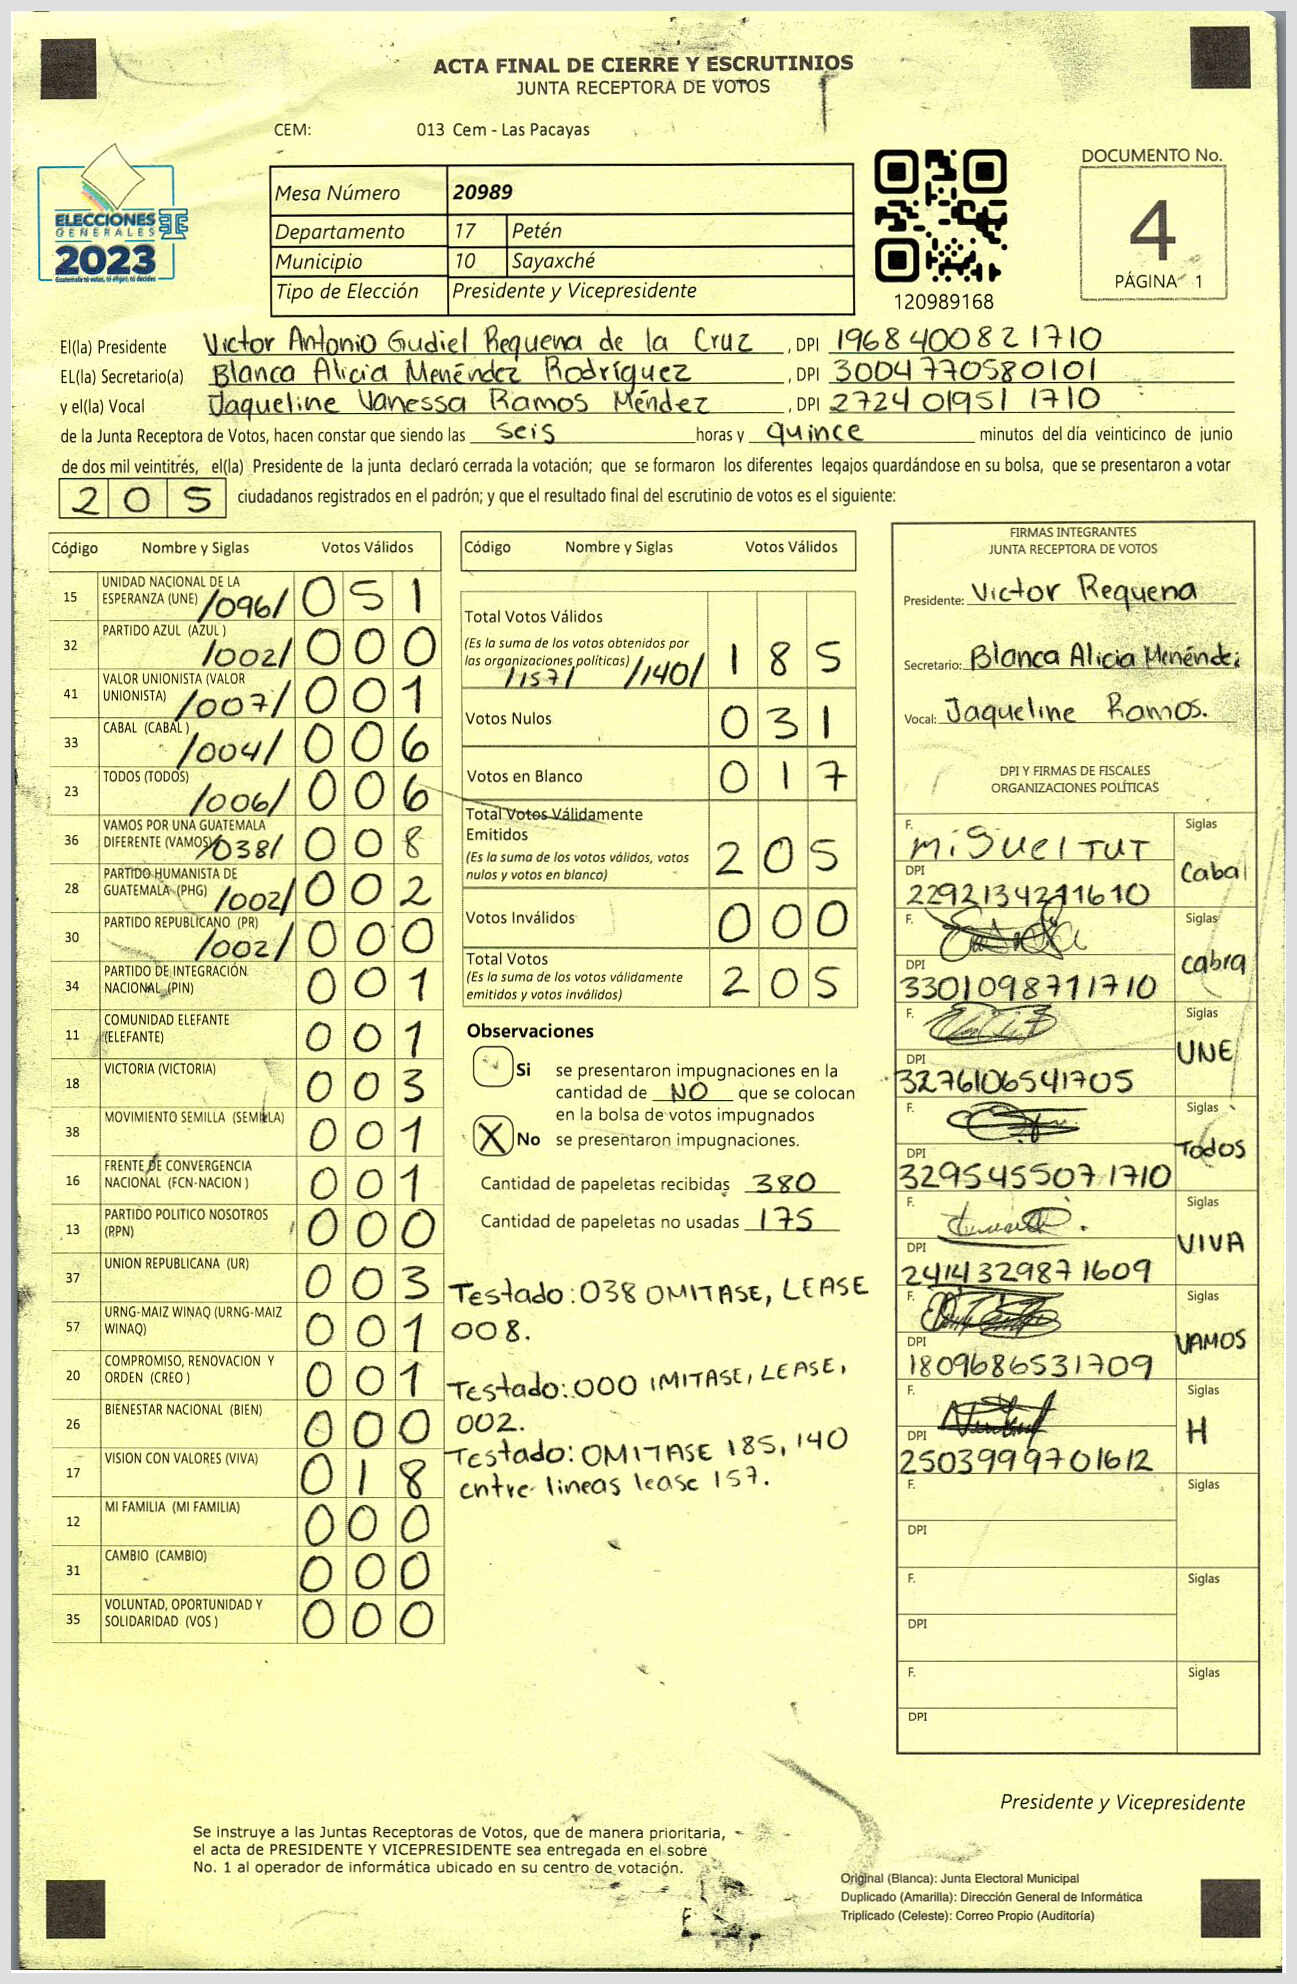 ACTA FINAL DE CIERRE Y ESCRUTINIOS
JUNTA RECEPTORA DE VOTOS
CEM: 013 Cem - Las Pacayas
ELECCIONES
GENERALES
2023
Guatemala tú votas, tú eliges, tú decides
Mesa Número 20989
Departamento 17 Petén
Municipio 10 Sayaxché
Tipo de Elección Presidente y Vicepresidente
120989168
DOCUMENTO No.
4
PÁGINA 1
El(la) Presidente Victor Antonio Gudiel Requena de la Cruz , DPI 1968400821710
EL(la) Secretario(a) Blanca Alicia Menéndez Rodríguez , DPI 3004770580101
y el(la) Vocal Jaqueline Vanessa Ramos Méndez , DPI 2724019511710
de la Junta Receptora de Votos, hacen constar que siendo las seis horas y quince minutos del día veinticinco de junio
de dos mil veintitrés, el(la) Presidente de la junta declaró cerrada la votación; que se formaron los diferentes legajos guardándose en su bolsa, que se presentaron a votar
205 ciudadanos registrados en el padrón; y que el resultado final del escrutinio de votos es el siguiente:
Código Nombre y Siglas Votos Válidos
15 UNIDAD NACIONAL DE LA ESPERANZA (UNE) /096/ 051
32 PARTIDO AZUL (AZUL ) /002/ 000
41 VALOR UNIONISTA (VALOR UNIONISTA) /007/ 001
33 CABAL (CABAL ) /004/ 006
23 TODOS (TODOS) /006/ 006
36 VAMOS POR UNA GUATEMALA DIFERENTE (VAMOS) /038/ 008
28 PARTIDO HUMANISTA DE GUATEMALA (PHG) /002/ 002
30 PARTIDO REPUBLICANO (PR) /002/ 000
34 PARTIDO DE INTEGRACIÓN NACIONAL (PIN) 001
11 COMUNIDAD ELEFANTE (ELEFANTE) 001
18 VICTORIA (VICTORIA) 003
38 MOVIMIENTO SEMILLA (SEMILLA) 001
16 FRENTE DE CONVERGENCIA NACIONAL (FCN-NACION ) 001
13 PARTIDO POLITICO NOSOTROS (RPN) 000
37 UNION REPUBLICANA (UR) 003
57 URNG-MAIZ WINAQ (URNG-MAIZ WINAQ) 001
20 COMPROMISO, RENOVACION Y ORDEN (CREO ) 001
26 BIENESTAR NACIONAL (BIEN) 000
17 VISION CON VALORES (VIVA) 018
12 MI FAMILIA (MI FAMILIA) 000
31 CAMBIO (CAMBIO) 000
35 VOLUNTAD, OPORTUNIDAD Y SOLIDARIDAD (VOS ) 000
Código Nombre y Siglas Votos Válidos
Total Votos Válidos
(Es la suma de los votos obtenidos por
las organizaciones políticas) /157/ /140/ 185
Votos Nulos 031
Votos en Blanco 017
Total Votos Válidamente
Emitidos
(Es la suma de los votos válidos, votos
nulos y votos en blanco) 205
Votos Inválidos 000
Total Votos
(Es la suma de los votos válidamente
emitidos y votos inválidos) 205
Observaciones
Si se presentaron impugnaciones en la
cantidad de NO que se colocan
en la bolsa de votos impugnados
X No se presentaron impugnaciones.
Cantidad de papeletas recibidas 380
Cantidad de papeletas no usadas 175
Testado: 038 OMITASE, LEASE
008.
Testado: 000 IMITASE, LEASE,
002.
Testado: OMITASE 185, 140
entre lineas lease 157.
FIRMAS INTEGRANTES
JUNTA RECEPTORA DE VOTOS
Presidente: Victor Requena
Secretario: Blanca Alicia Menéndez
Vocal: Jaqueline Ramos.
DPI Y FIRMAS DE FISCALES
ORGANIZACIONES POLÍTICAS
F. Miguel TUT Siglas Cabal
DPI 2292134211610
F. Siglas cabra
DPI 3301098711710
F. Siglas UNE
DPI 3276106541705
F. Siglas Todos
DPI 3295455071710
F. Siglas VIVA
DPI 2414329871609
F. Siglas VAMOS
DPI 1809686531709
F. Siglas H
DPI 2503999701612
F. Siglas
DPI
F. Siglas
DPI
F. Siglas
DPI
Presidente y Vicepresidente
Se instruye a las Juntas Receptoras de Votos, que de manera prioritaria,
el acta de PRESIDENTE Y VICEPRESIDENTE sea entregada en el sobre
No. 1 al operador de informática ubicado en su centro de votación.
Original (Blanca): Junta Electoral Municipal
Duplicado (Amarilla): Dirección General de Informática
Triplicado (Celeste): Correo Propio (Auditoría)